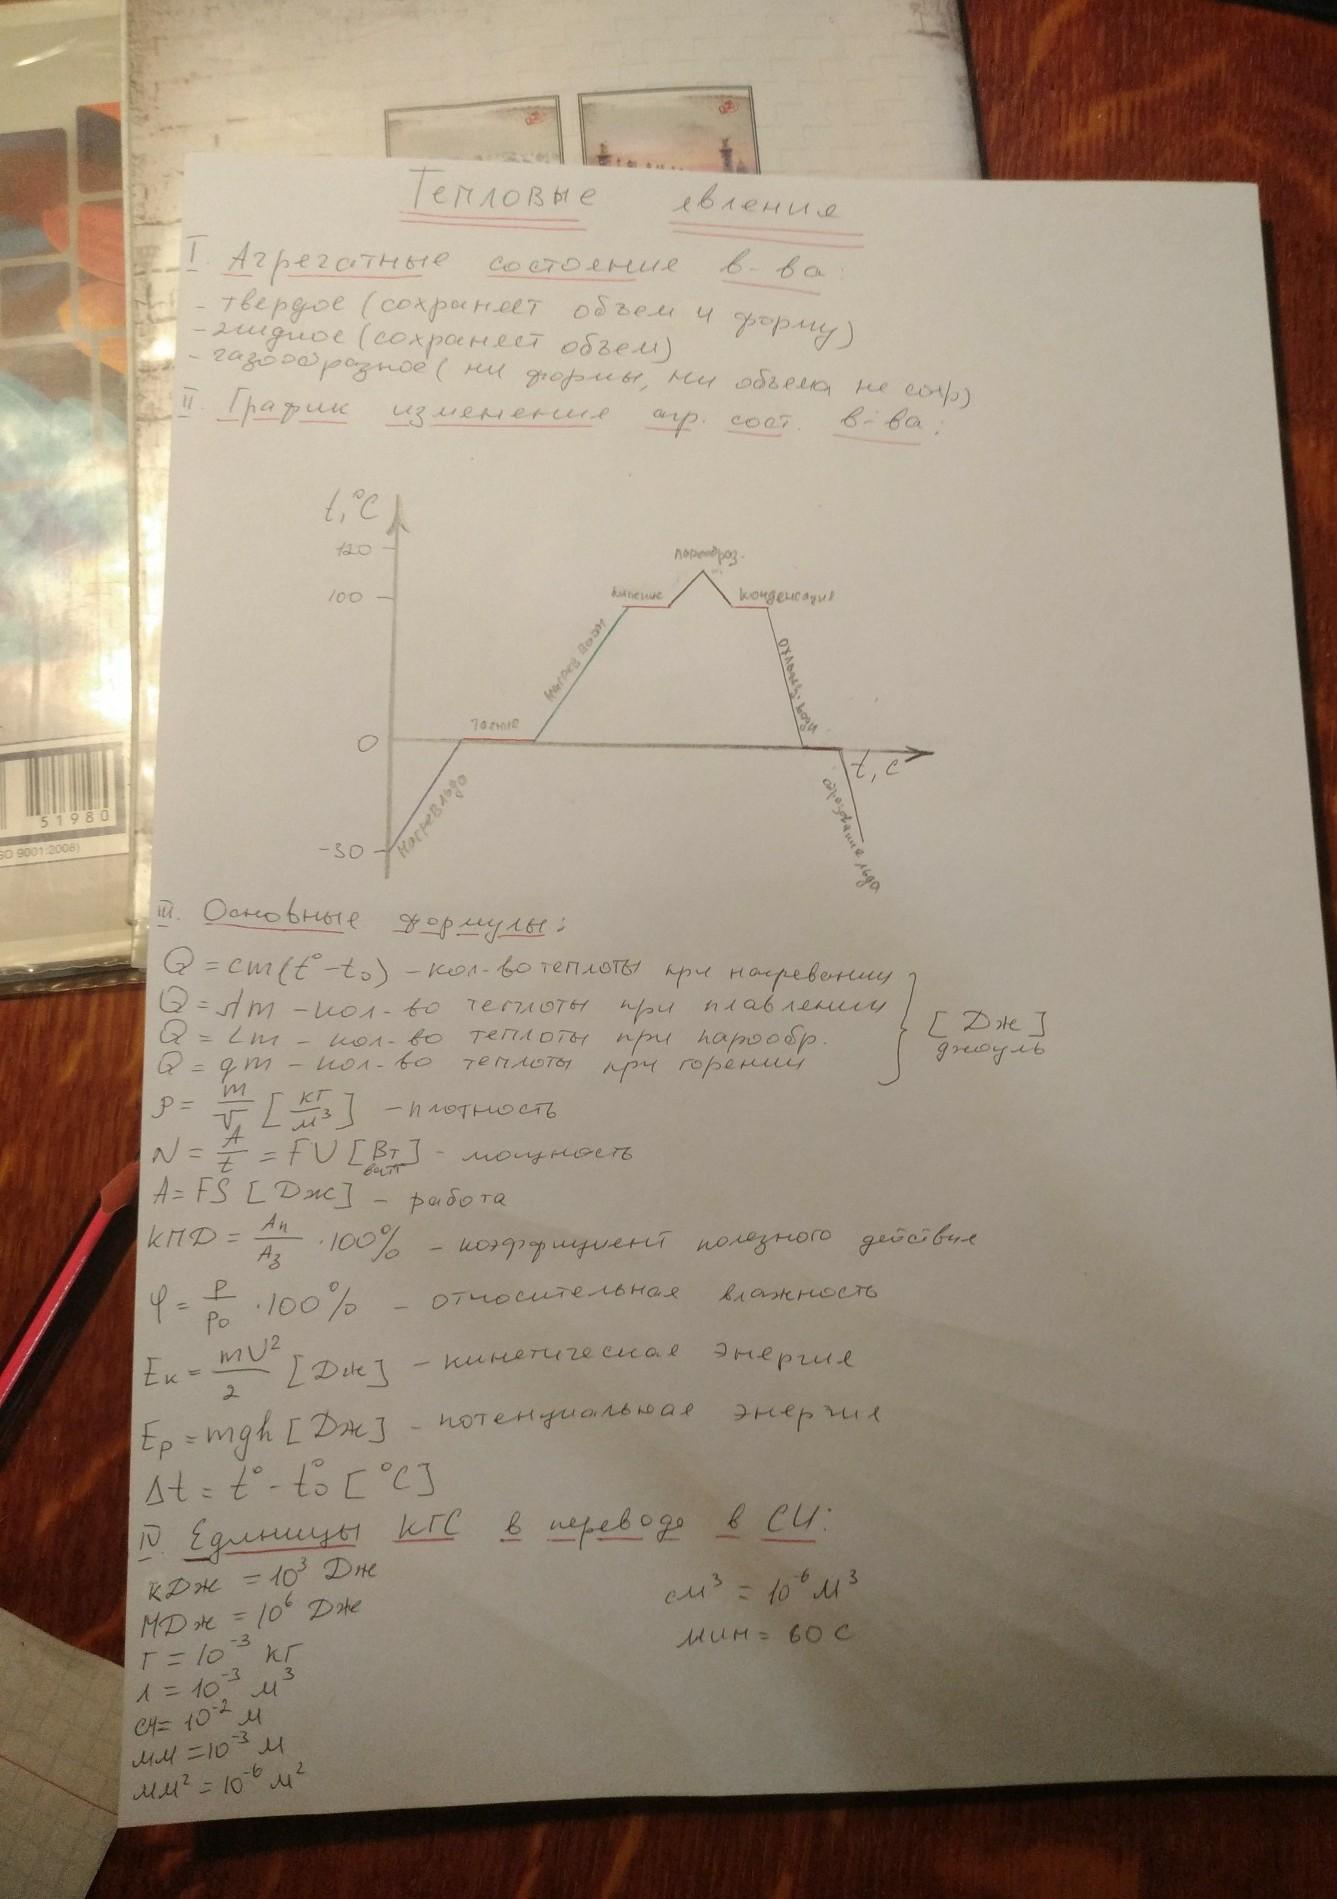 Тепловые явления
I. Агрегатные состояние в-ва:
- твердое (сохраняет объем и форму)
- жидкое (сохраняет объем)
- газообразное (ни формы, ни объема не сохр)
II. График изменение агр. сост. в-ва:
t,°C
120
100
0
-30
парообраз.
кипение
конденсация
нагрев воды
охлажд. воды
таение
t, c
нагрев льда
образование льда
III. Основные формулы:
Q = cm(t° - t₀) - кол-во теплоты при нагревании
Q = λm - кол-во теплоты при плавлении
Q = Lm - кол-во теплоты при парообр.
Q = qm - кол-во теплоты при горении
[Дж]
джоуль
ρ = m/V [кг/м³] - плотность
N = A/t = FU [Вт] - мощность
ватт
A = FS [Дж] - работа
КПД = Aп/Aз · 100% - коэффициент полезного действия
φ = P/P₀ · 100% - относительная влажность
Eк = mU²/2 [Дж] - кинетическая энергия
Eр = mgh [Дж] - потенциальная энергия
Δt = t° - t₀° [°C]
IV Единицы КГС в переводе в СИ:
кДж = 10³ Дж
МДж = 10⁶ Дж
г = 10⁻³ кг
л = 10⁻³ м³
см = 10⁻² м
мм = 10⁻³ м
мм² = 10⁻⁶ м²
см³ = 10⁻⁶ м³
мин = 60 с
51980
ISO 9001:2008)